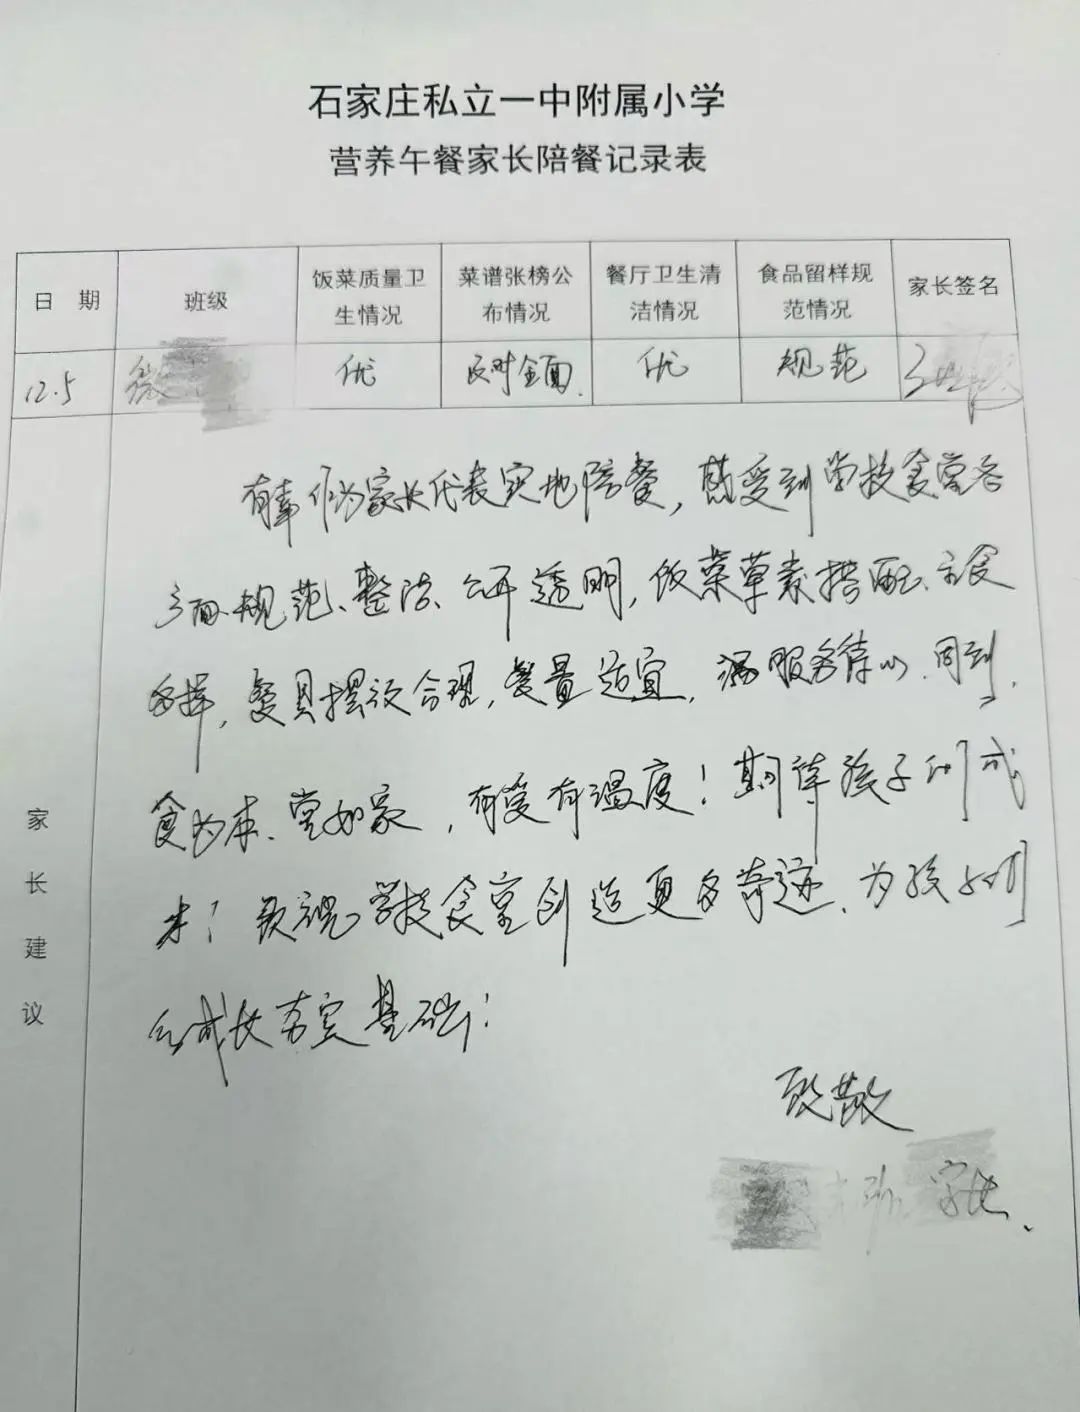 石家庄私立一中附属小学
营养午餐家长陪餐记录表
日 期 班级 饭菜质量卫生情况 菜谱张榜公布情况 餐厅卫生清洁情况 食品留样规范情况 家长签名
12.5 优 及时全面. 优 规范
有幸作为家长代表实地陪餐，感受到学校食堂各
方面规范、整洁、公开透明，饭菜荤素搭配、主食
多样，餐具摆设合理，餐量适宜，服务 周到.
食为本、堂如家，有爱有温度！期待孩子们成
才！敬祝学校食堂创造更多奇迹、为孩子们
的成长夯实基础！
致敬
家长.
家长建议